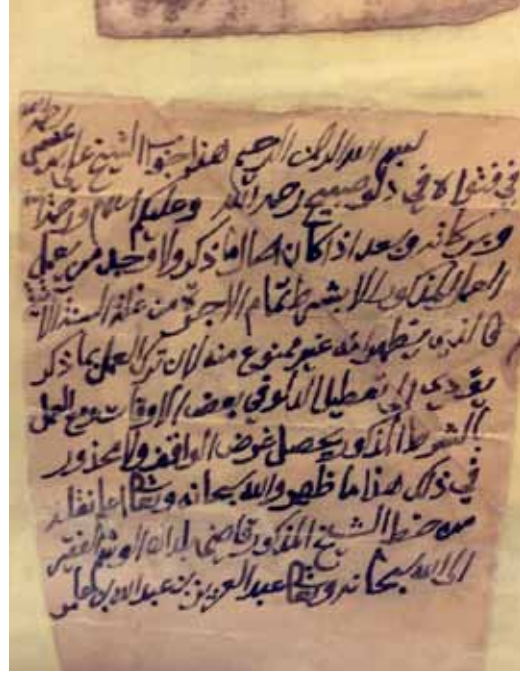 بسم الله الرحمن الرحيم هذا جواب الشيخ علي بن عيسى رحمه الله
في فتواه في دلو صبيح رحمه الله وعليكم السلام ورحمة الله
وبركاته وبعد اذا كان الحال ما ذكر ولا وجد من يعمل
العمل المذكور الا بشرط تمام الاجرة من غلة السنة الآتية
فالذي يظهر انه غير ممنوع منه لان ترك العمل بما ذكر
يؤدي الى تعطيل الدلو في بعض الاوقات ومع العمل
بالشرط المذكور يحصل غرض الواقف ولا محذور
في ذلك هذا ما ظهر والله سبحانه وتعالى اعلم نقله
من خط الشيخ المذكور قاضي بلدان الوشم الفقير
الى الله سبحانه وتعالى عبد العزيز بن عبد الله بن عامر